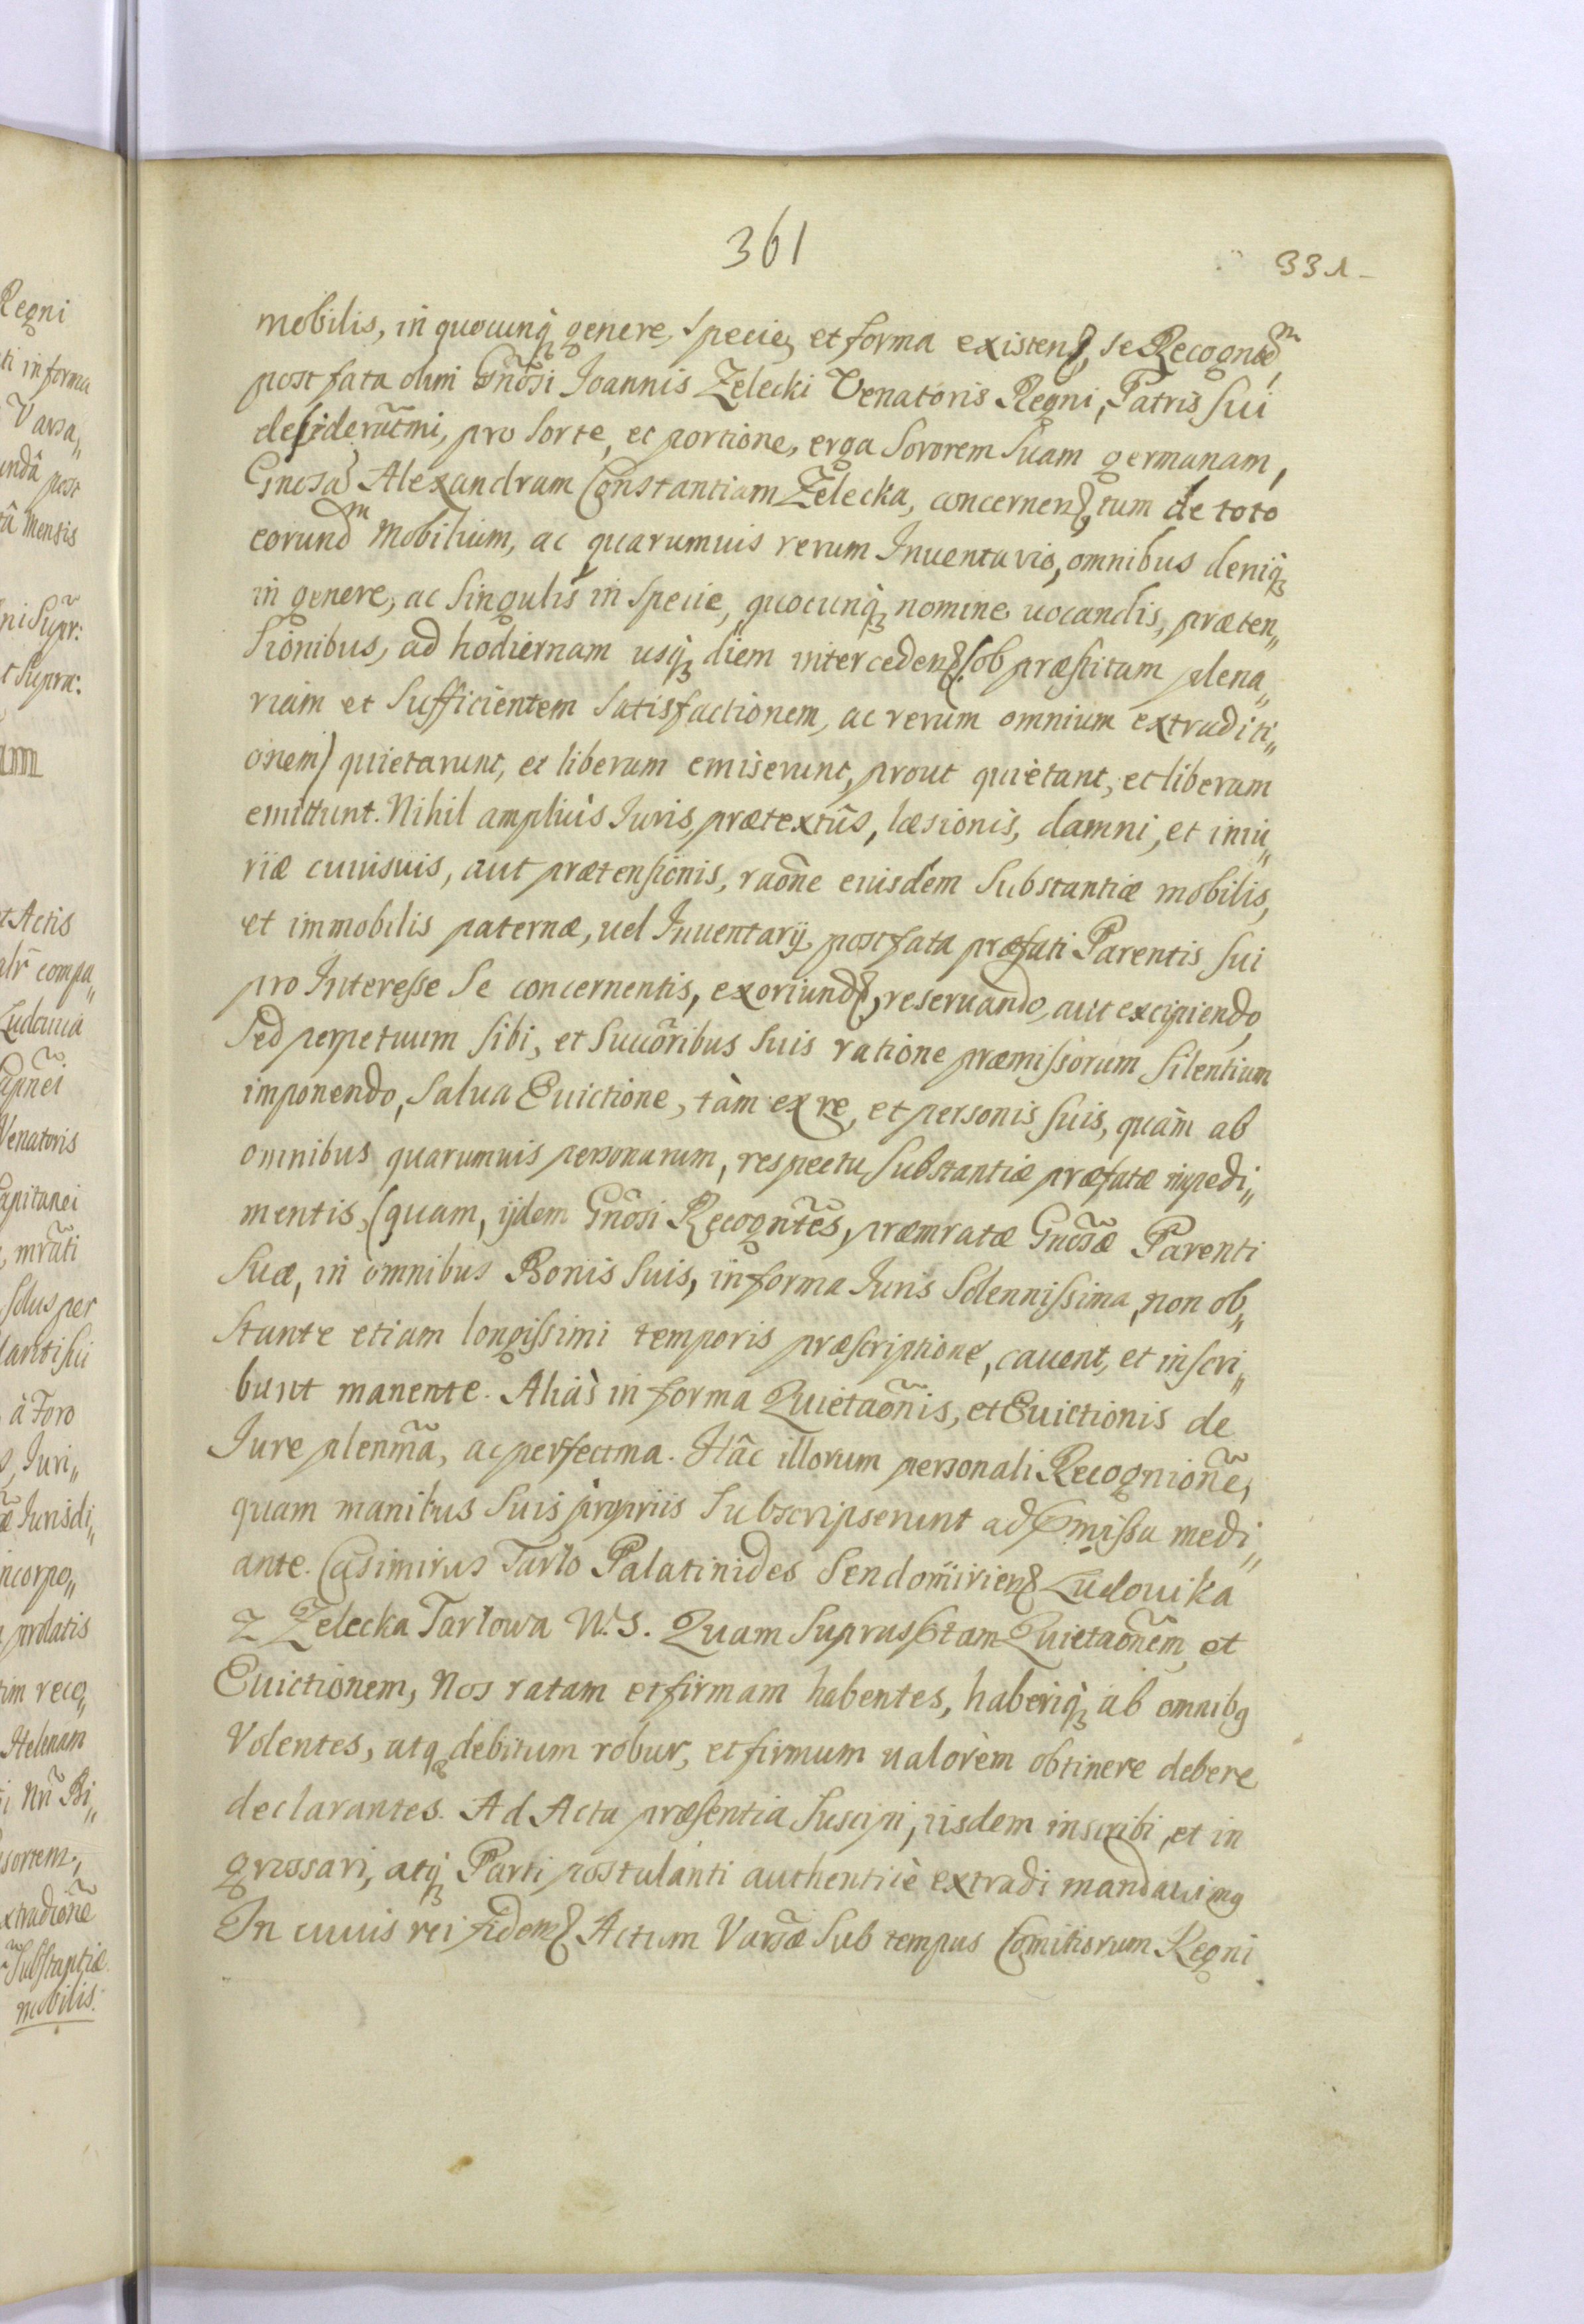 361
331
mobilis, in quocunq́ genere, specie, et forma existen, se Recognõ
post fata olim Gñosi Joannis Zelecki Venatoris Regni, Patris sui
desideratmi, pro sorte, et portione, erga sororem suam germanam,
Gnosã Alexandram Constantiam Zelecka, concernen, tum de toto
eorundm Mobilium, ac quarumuis rerum Inuentario, omnibus deniq́
in genere, ac singulis in specie, quocunq́ nomine uocandis, præten„
sionibus, ad hodiernam usq́ diem interceden (ob præstitam plena„
riam et sufficientem satisfactionem, ac rerum omnium extraditi„
onem) quietarunt, et liberam emiserunt, prout quietant, et liberam
emittunt. Nihil ampliùs Juris, prætextûs, læsionis, damni, et iniu„
riæ cuiusuis, aut prætensionis, raõne eiusdem substantiæ mobilis,
et immobilis paternæ, uel Inuentarij post fata præfati Parentis sui
pro Interesse se concernentis, exoriund, reseruando, aut excipiendo,
sed perpetuum sibi, et succõribus suis ratione præmissorum silentium
imponendo, salua Euictione, tàm ex re, et personis suis, quàm ab
omnibus quarumuis personarum, respectu substantiæ præfatæ impedi„
mentis, (quam, ijdem Gñosi Recogñtes, præmratæ Gnosæ Parenti
suæ, in omnibus Bonis suis, in forma Juris solennissima, non ob„
stante etiam longissimi temporis præscriptione, cauent, et inscri„
bunt manente. Aliàs in forma Quietaõnis, et Euictionis de
Jure plenmã, ac perfectma. Hâc illorum personali Recogniõne,
quam manibus suis propriis subscripserunt ad præmissa medi„
ante. Casimirus Tarło Palatinides Sendomirien Ludouika
z Zelecka Tarłowa W. S. Quam suprascptam Quietaõnem, et
Euictionem, Nos ratam et firmam habentes, haberiq́ ab omnibq
Volentes, atq debitum robur, et firmum ualorem obtinere debere
declarantes. Ad Acta præsentia suscipi, iisdem inscribi, et in
grossari, atq́ Parti postulanti authenticè extradi mandauimq
In cuius rei fidem Actum Varsæ sub tempus Comitiorum Regni